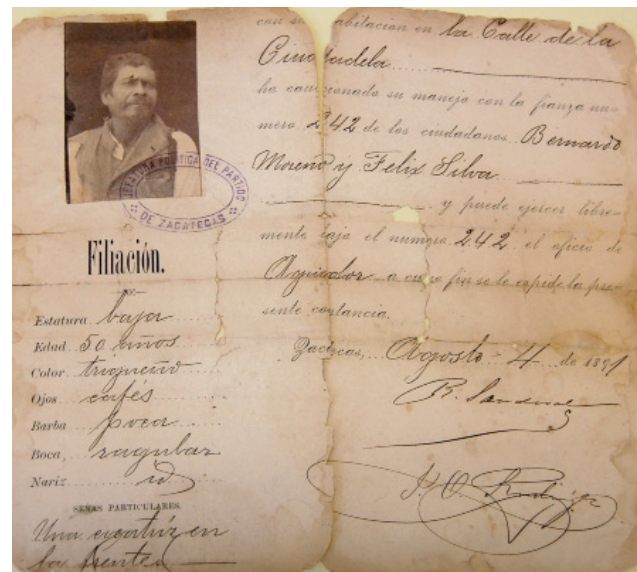 JEFATURA POLITICA DEL PARTIDO
DE ZACATECAS
Filiación.
Estatura baja
Edad 50 años
Color trigueño
Ojos cafés
Barba poca
Boca, regular
Nariz id
SEÑAS PARTICULARES.
Una cicatriz en
la frente
con su habitacion en la Calle de la
Ciudadela
ha caucionado su manejo con la fianza nu-
mero 242 de los ciudadanos Bernardo
Moreno y Felix Silva
y puede ejercer libre-
mente bajo el numero 242 el oficio de
Aguador a cuyo fin se le expide la pre-
sente constancia.
Zactecas, Agosto 4 de 1891
R. Sandoval